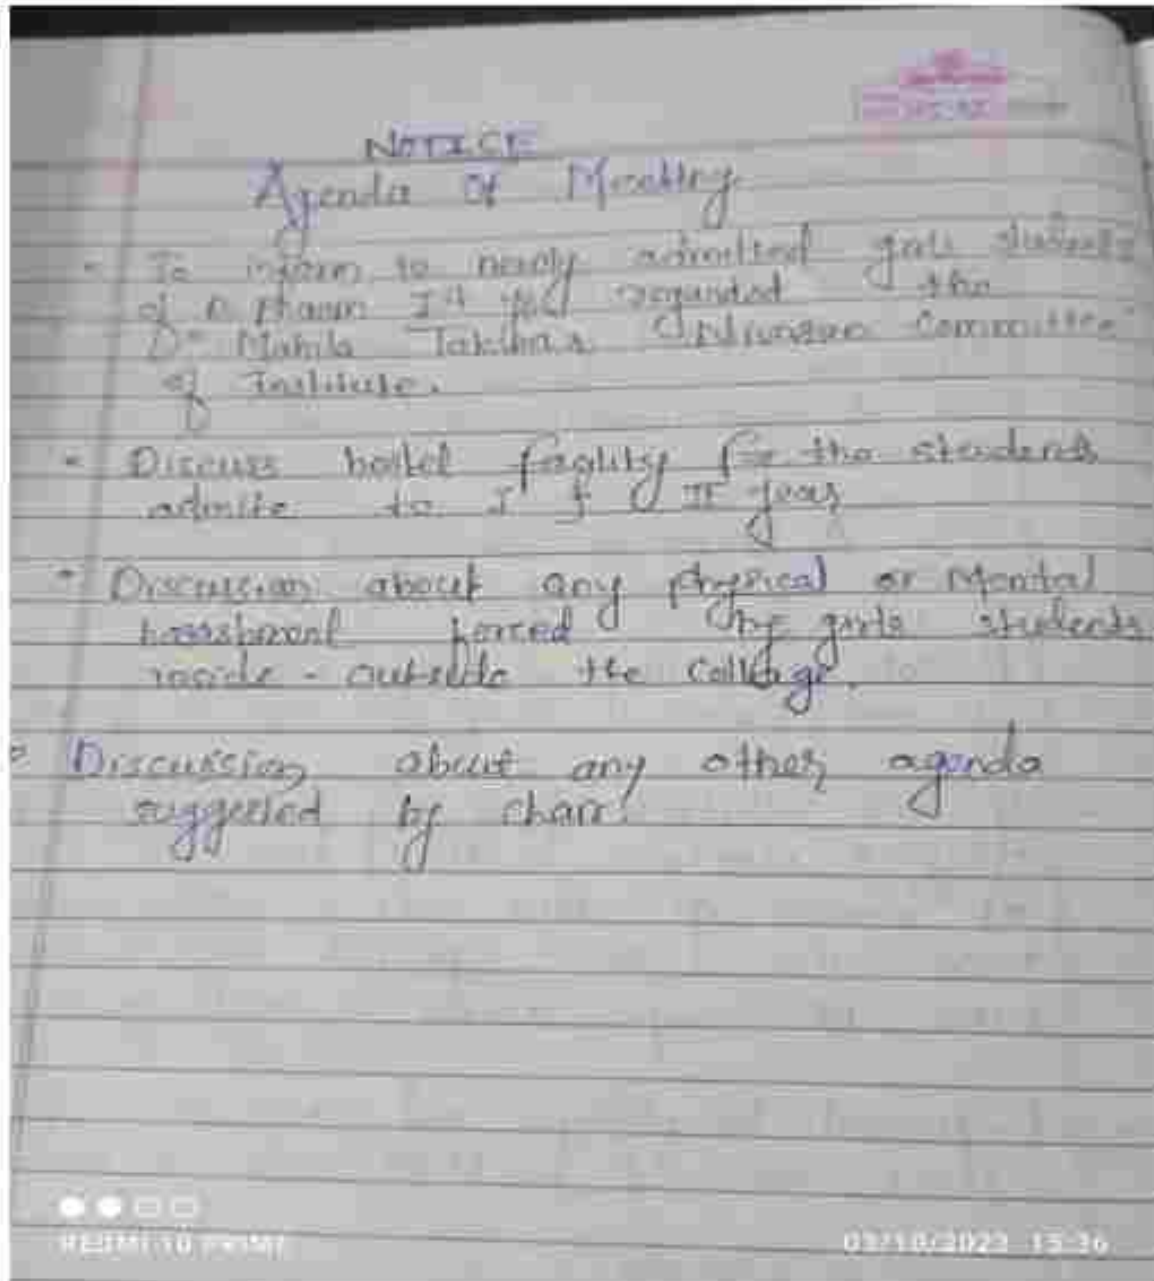 NOTICE
Agenda Of Meeting
• To inform to newly admitted girls students
of D. Pharm Ist regarded the
Mahila Takrar Committee
of Institute.
• Discuss hostel faglity for the students
admite to I & II year
• Discussion about any physical or Mental
forced by girls students
inside - outside the Collage.
• Discussion about any other agenda
suggested by chair.
REDMI 10 PRIME
03/10/2023 15:36